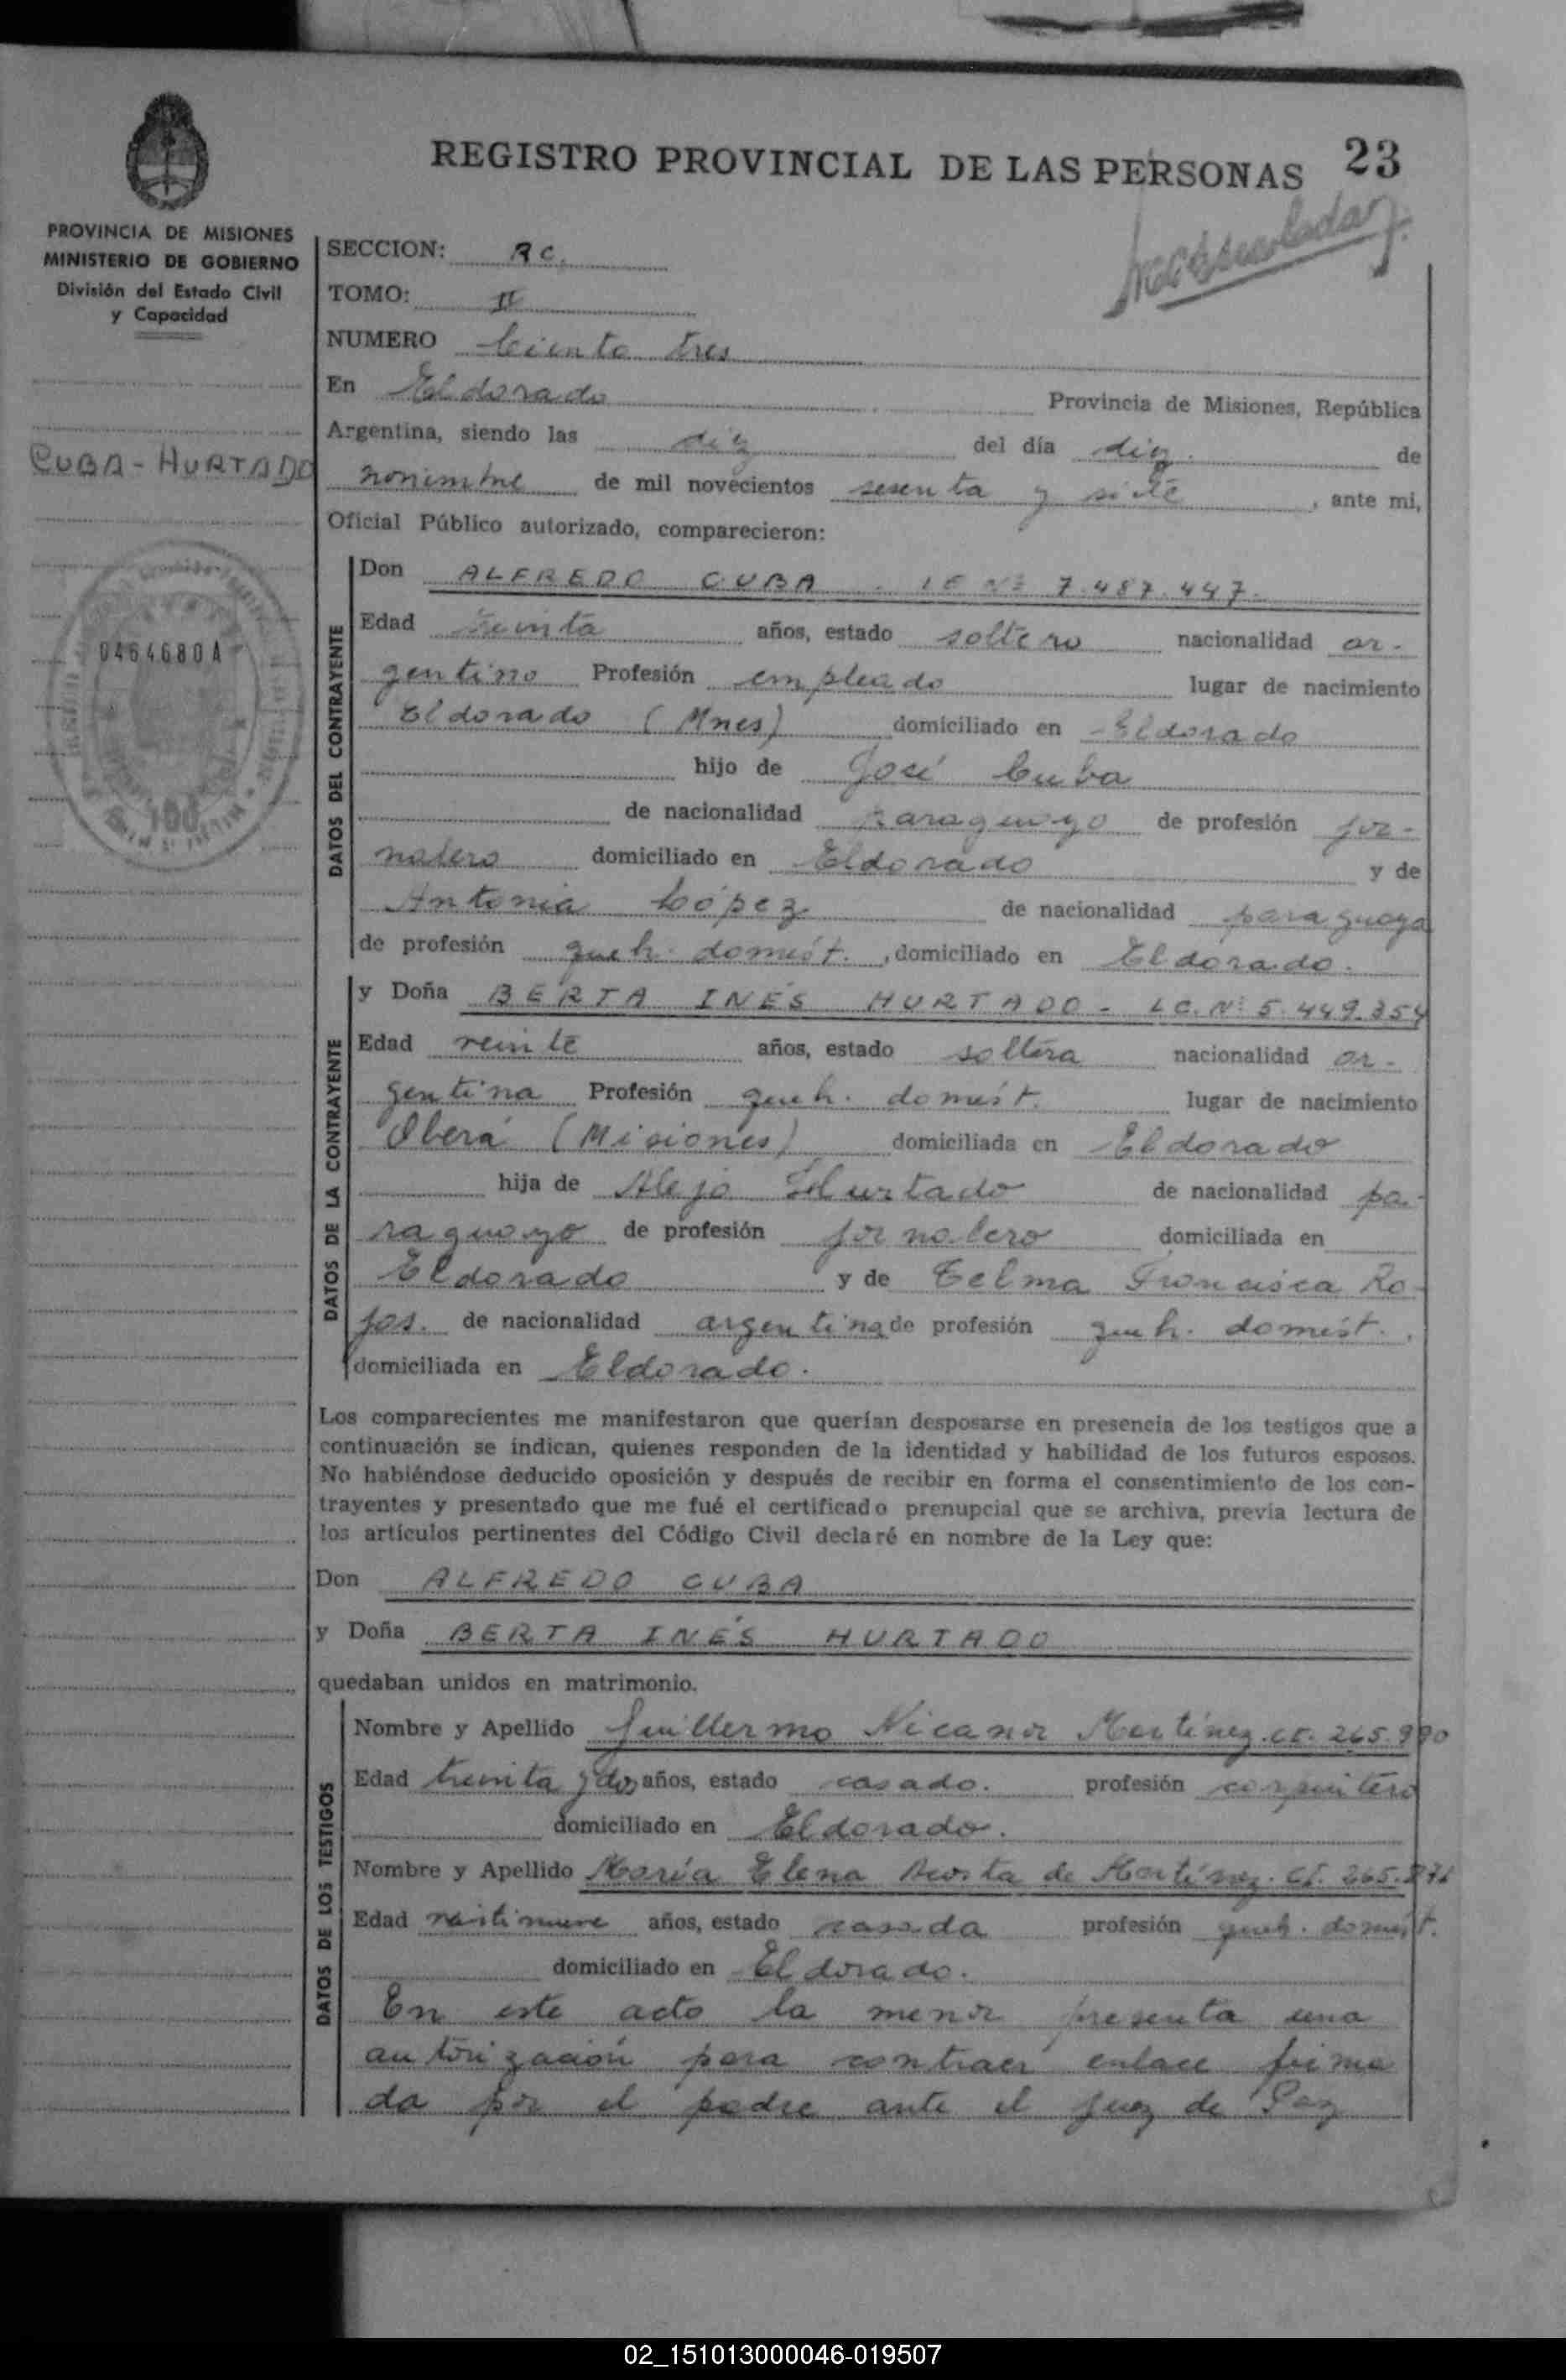 REGISTRO PROVINCIAL DE LAS PERSONAS 23
PROVINCIA DE MISIONES
MINISTERIO DE GOBIERNO
División del Estado Civil
y Capacidad
CUBA - HURTADO
0464680A
100
SECCION: RC.
TOMO: II
NUMERO Ciento tres
En Eldorado Provincia de Misiones, República
Argentina, siendo las diez del día diez de
noviembre de mil novecientos sesenta y siete, ante mi,
Oficial Público autorizado, comparecieron:
DATOS DEL CONTRAYENTE
Don ALFREDO CUBA - LE Nº 7.487.447.
Edad treinta años, estado soltero nacionalidad ar-
gentino Profesión empleado lugar de nacimiento
Eldorado (Mnes) domiciliado en Eldorado
hijo de José Cuba
de nacionalidad paraguayo de profesión jor-
nalero domiciliado en Eldorado y de
Antonia López de nacionalidad paraguaya
de profesión queh. domést., domiciliado en Eldorado.
DATOS DE LA CONTRAYENTE
y Doña BERTA INÉS HURTADO - LC. Nº 5.449.354
Edad veinte años, estado soltera nacionalidad ar-
gentina Profesión queh. domést. lugar de nacimiento
Oberá (Misiones) domiciliada en Eldorado
hija de Alejo Hurtado de nacionalidad pa-
raguayo de profesión jornalero domiciliada en
Eldorado y de Telma Francisca Ro-
jas. de nacionalidad argentina de profesión queh. domést.,
domiciliada en Eldorado.
Los comparecientes me manifestaron que querían desposarse en presencia de los testigos que a
continuación se indican, quienes responden de la identidad y habilidad de los futuros esposos.
No habiéndose deducido oposición y después de recibir en forma el consentimiento de los con-
trayentes y presentado que me fué el certificado prenupcial que se archiva, previa lectura de
los artículos pertinentes del Código Civil declaré en nombre de la Ley que:
Don ALFREDO CUBA
y Doña BERTA INÉS HURTADO
quedaban unidos en matrimonio.
DATOS DE LOS TESTIGOS
Nombre y Apellido Guillermo Nicanor Martínez. CI. 265.990
Edad treinta y dos años, estado casado. profesión carpintero
domiciliado en Eldorado.
Nombre y Apellido María Elena Acosta de Martínez. CI.
Edad veintinueve años, estado casada profesión queh. domést.
domiciliado en Eldorado.
En este acto la menor presenta una
autorización para contraer enlace firma
da por el padre ante el Juez de Paz
02_151013000046-019507